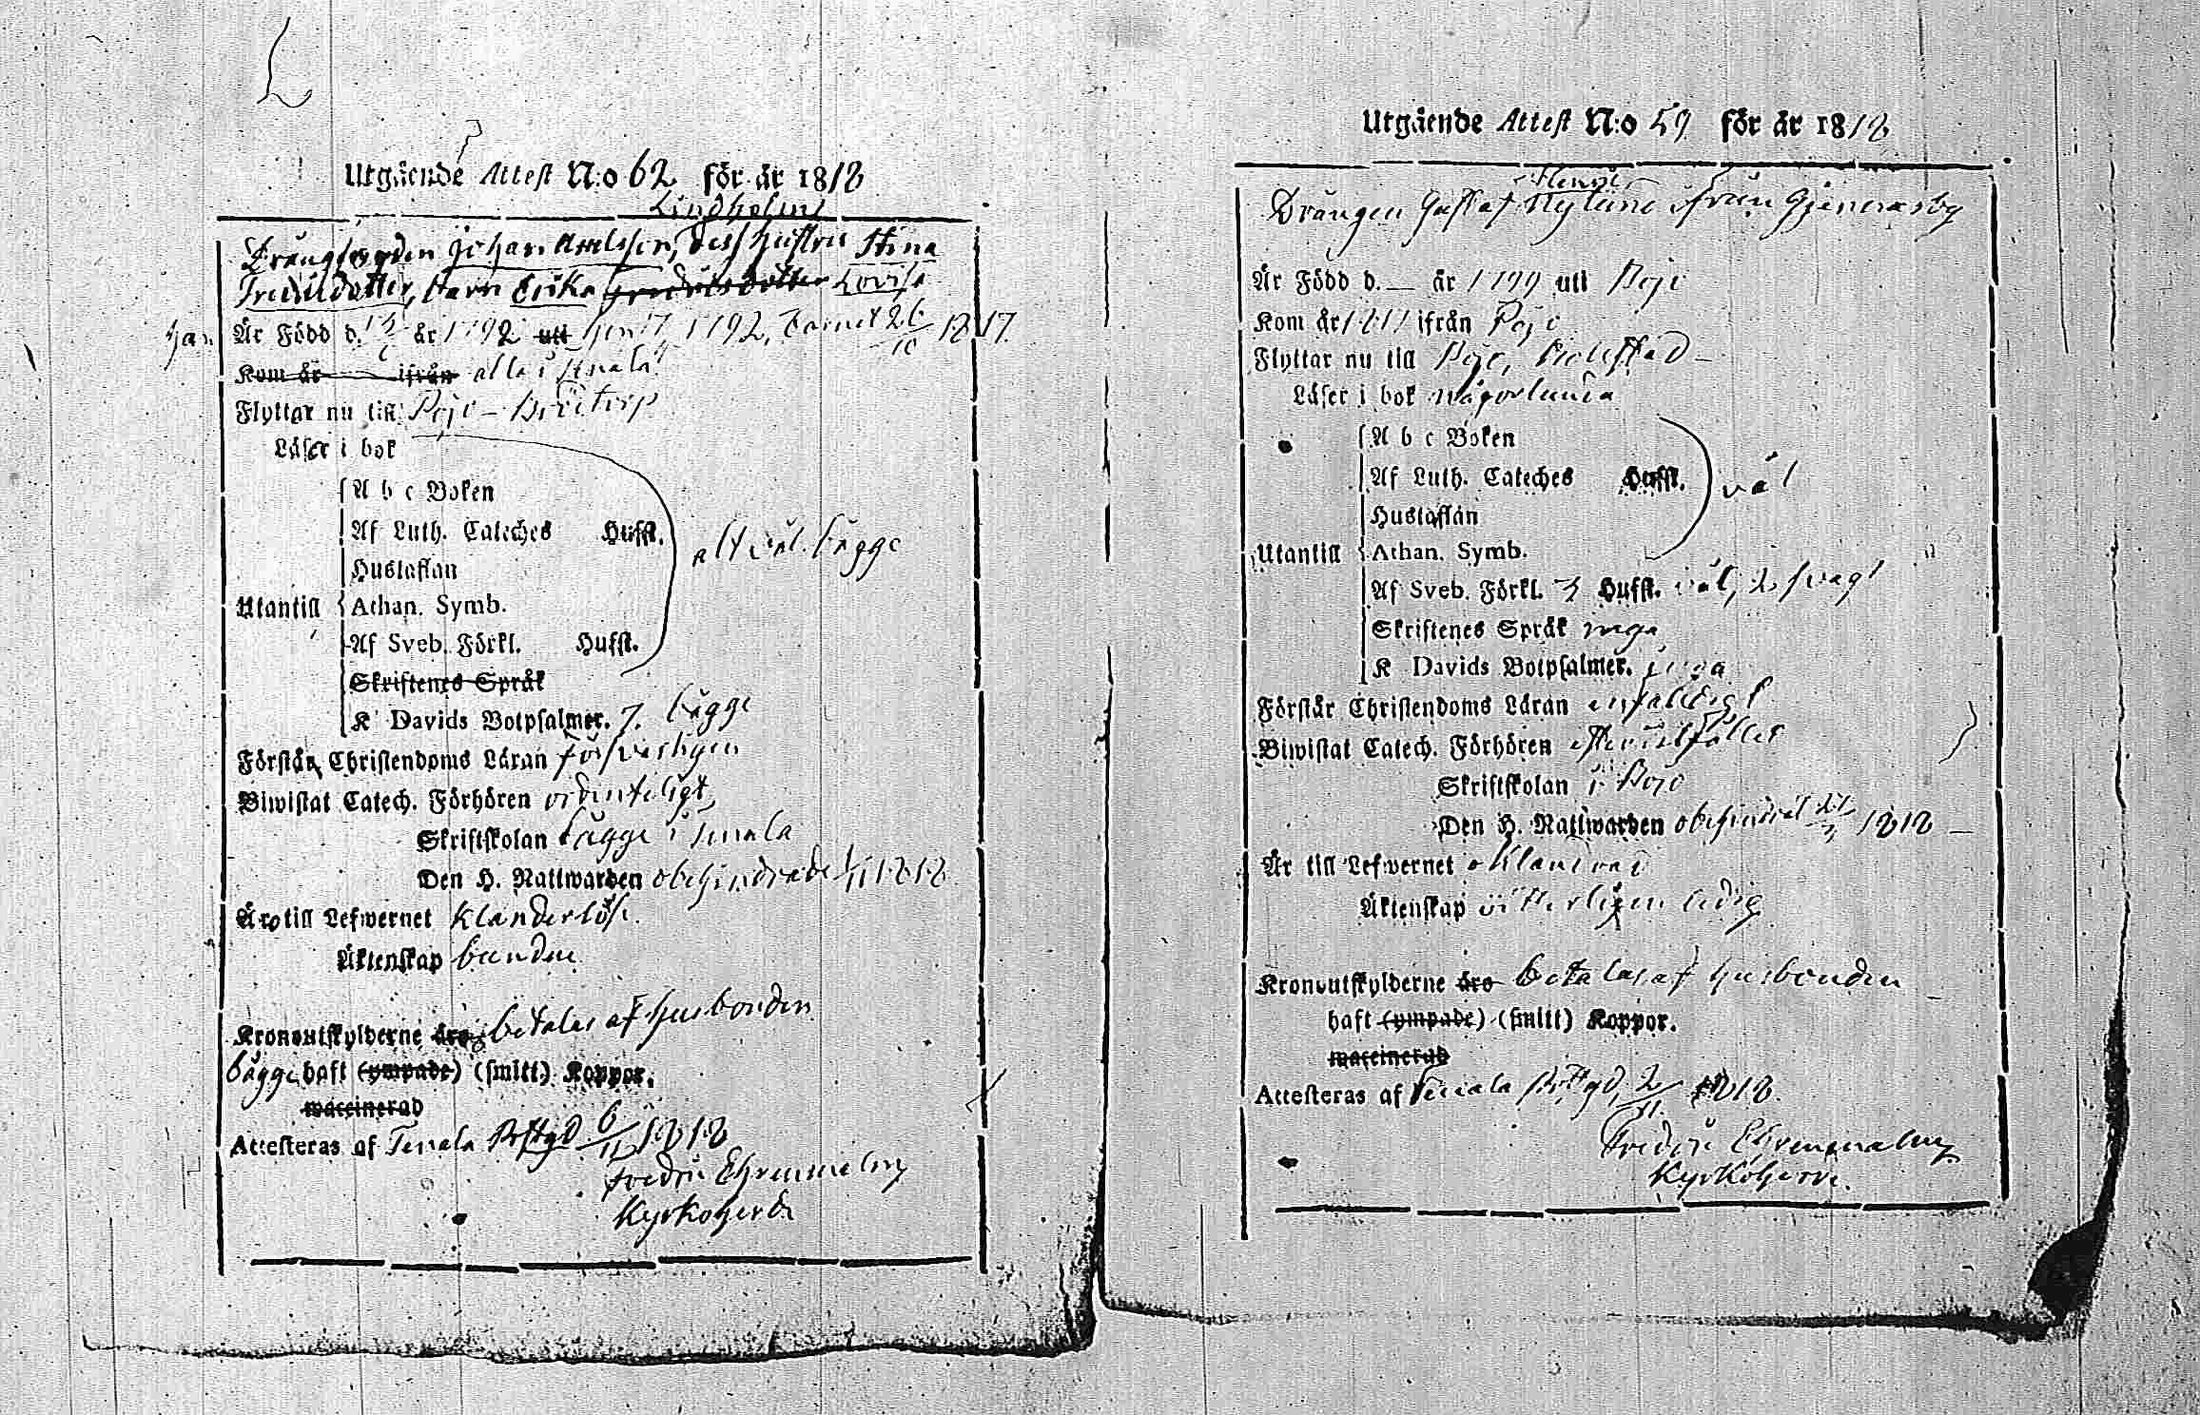 L
Utgående Attest N:o 62 för år 1818
Lindholm
Drängfogden Johan Axelsson, dess hustru Stina
Fredricsdotter, barn Erika Fredricsdotter Lovisa
han Är Född d. år 1792 utt hon 1792, barnet 26/10 1817.
Kom år ifrån alla i Tenala
Flyttar nu till Pojo – Broitorp
Läser i bok
A b c Boken
Af Luth. Cateches Hufst.
Hustaflan
alt väl bägge
Utantill Athan. Symb.
Af Sveb. Förkl. Hufst.
Skriftenes Språk
K Davids Botpsalmer. 7. bägge
Förstår Christendoms Läran försvarligen
Biwistat Catech. Förhören ordenteligt
Skriftskolan bägge i Tenala
Den H. Nattwarden obehindrade 1/11 1818
Äro till Lefwernet klanderlöse.
Äktenskap bundne
Kronoutskylderne äro betalas af husbonden
bägge haft (ympade) (smitt) Koppor.
waccinerad
Attesteras af Tenala Prstgd 6/11 1818
Fredric Ehrenmalm
Kyrkoherde
Utgående Attest N:o 59 för år 1818
Henric
Drängen Gustaf Nylund ifrån Gjennäsby
Är Född d. — år 1799 utt Pojo
Kom år 1817 ifrån Pojo
Flyttar nu till Pojo,
Läser i bok någorlunda
A b c Boken
Af Luth. Cateches Hufst. väl
Hustaflan
Utantill Athan. Symb.
Af Sveb. Förkl. 3 Hufst. väl, 2 svagt
Skriftenes Språk inga
K Davids Botpsalmer. inga
Förstår Christendoms Läran enfaldigt
Biwistat Catech. Förhören
Skriftskolan i Pojo
Den H. Nattwarden obehindrat 1818 —
Är till Lefwernet oklandrad
Äktenskap witterligen ledig
Kronoutskylderne äro betalas af husbonden
haft (ympade) (smitt) Koppor.
waccinerad
Attesteras af Tenala Prstgd, 2/11. 1818.
Fredric Ehrenmalm
Kyrkoherde.